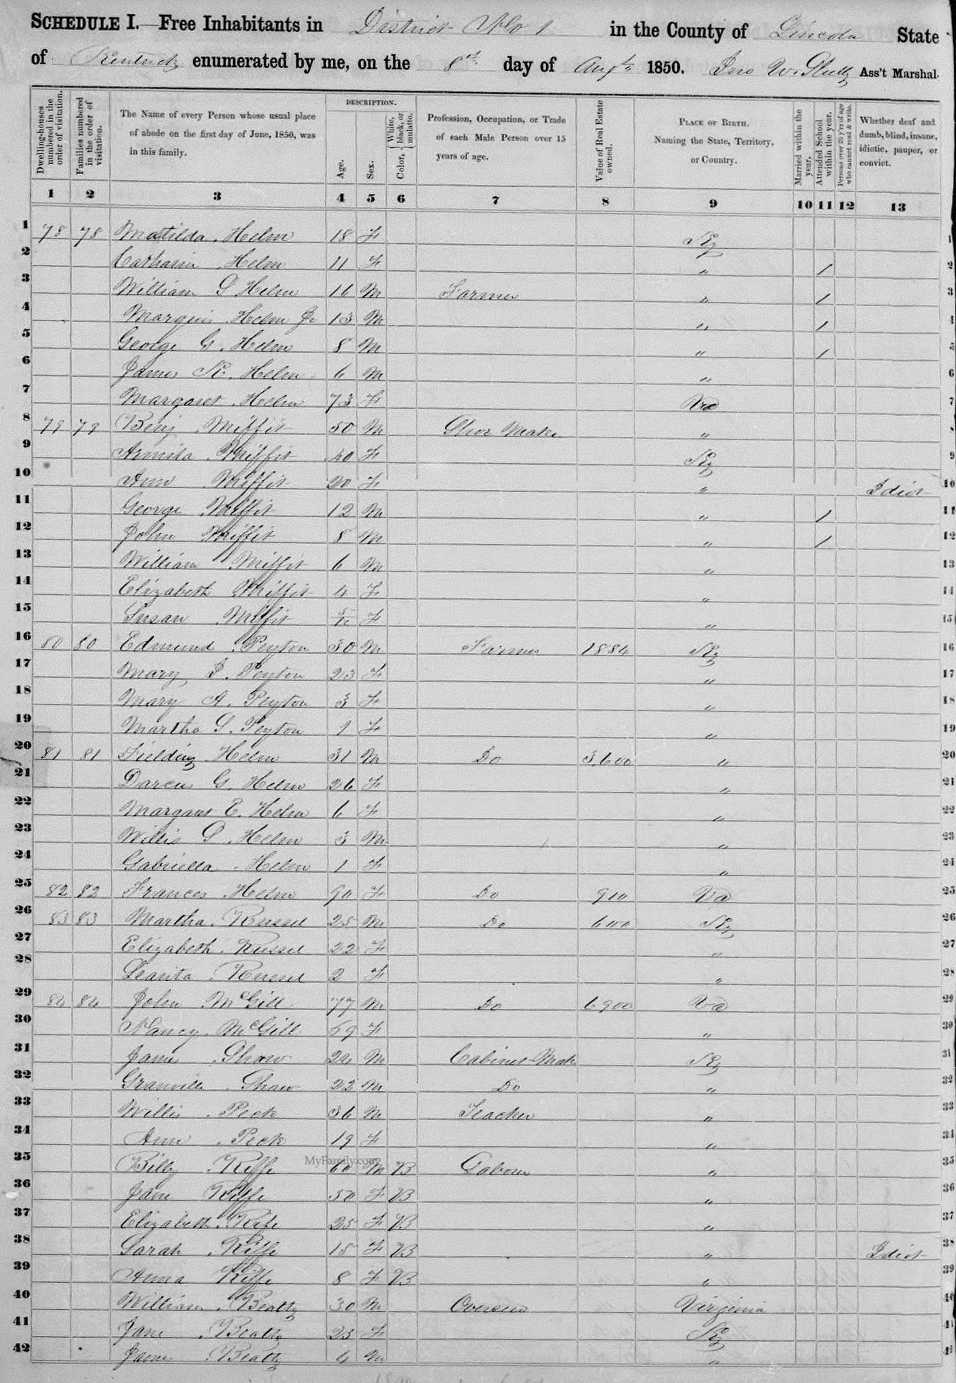 SCHEDULE I.—Free Inhabitants in District No 1 in the County of Lincoln State
of Kentucky enumerated by me, on the 8th day of Augt 1850. Jno W. Ass't Marshal.
Dwelling-houses numbered in the order of visitation.
Families numbered in the order of visitation.
The Name of every Person whose usual place of abode on the first day of June, 1850, was in this family.
DESCRIPTION.
Age.
Sex.
Color, White, black, or mulatto.
Profession, Occupation, or Trade of each Male Person over 15 years of age.
Value of Real Estate owned.
PLACE OF BIRTH. Naming the State, Territory, or Country.
Married within the year.
Attended School within the year.
Persons over 20 y'rs of age who cannot read & write.
Whether deaf and dumb, blind, insane, idiotic, pauper, or convict.
1 2 3 4 5 6 7 8 9 10 11 12 13
1 78 78 Matilda Helm 18 F Ky 1
2 Catharin Helm 11 F " 1 2
3 William Helm 16 M Farmer " 1 3
4 Helm Jr 13 M " 1 4
5 George G. Helm 8 M " 1 5
6 James Helm 6 M " 6
7 Margaret Helm 73 F Va 7
8 79 79 Benj Miffit 50 M Shoe Make " 8
9 Miffit 40 F Ky 9
10 Ann Miffit 20 F " Idiot 10
11 George Miffit 12 M " 1 11
12 John Miffit 8 M " 1 12
13 William Miffit 6 M " 13
14 Elizabeth Miffit 4 F " 14
15 Susan Miffit F " 15
16 80 80 Edmund Peyton 30 M Farmer Ky 16
17 Mary Peyton 23 F " 17
18 Mary A. Peyton 3 F " 18
19 Martha Peyton 1 F " 19
20 81 81 Fielding Helm 31 M Do 3600 " 20
21 G. Helm 26 F " 21
22 Margaret E. Helm 6 F " 22
23 Willis Helm 3 M " 23
24 Gabriella Helm 1 F " 24
25 82 82 Frances Helm 90 F Do 900 Va 25
26 83 83 Martha Russel 25 M Do 600 Ky 26
27 Elizabeth Russel 22 F " 27
28 Russel 2 F " 28
29 84 84 John McGill 77 M Do 6900 Va 29
30 Nancy McGill 69 F " 30
31 Shaw 24 M Cabinet Mak Ky 31
32 Granville Shaw 22 M Do " 32
33 Willis Peck 36 M Teacher " 33
34 Ann Peck 19 F " 34
35 Billy Riffe 60 M B Labour " 35
MyFamily.com
36 Jane Riffe 50 F B " 36
37 Elizabeth Rife 25 F B " 37
38 Sarah Riffe 15 F B " Idiot 38
39 Anna Riffe 8 F B " 39
40 William Beatty 30 M Overseer Virginia 40
41 Jane Beatty 23 F Ky 41
42 James Beatty 4 M " 42